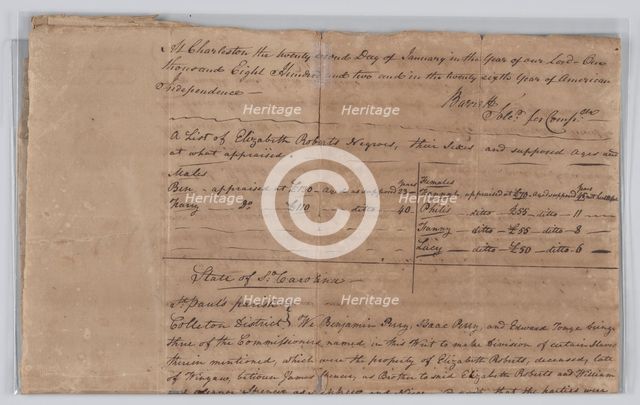 At Charleston the twenty second Day of January in the Year of our Lord One
thousand Eight Hundred and two and in the twenty sixth Year of American
Independence —
Solr. for Compts.
A List of Elizabeth Roberts Negroes, their Sexes and supposed Ages and
at what appraised.
Males
Ben - appraised at £130 - aged as supposed 23 years
Harry Do. - £110 - ditto - 40
Females
Hannah appraised at £70 - aged supposed Years
Philis - ditto - £55 - ditto - 11
Fanny - ditto - £55 - ditto - 8
Lucy - ditto - £50 - ditto - 6
State of So. Carolina
St. Pauls parish
Colleton District } We Benjamin Perry, Isaac Perry, and Edward Tonge being
three of the Commissioners named in this Writ to make Division of certain Slaves
therein mentioned, which were the property of Elizabeth Roberts, deceased, late
of between James Spencer, as Brother to said Elizabeth Roberts and William
that the parties were
Heritage
Heritage
Heritage
Heritage
Heritage
Heritage
C